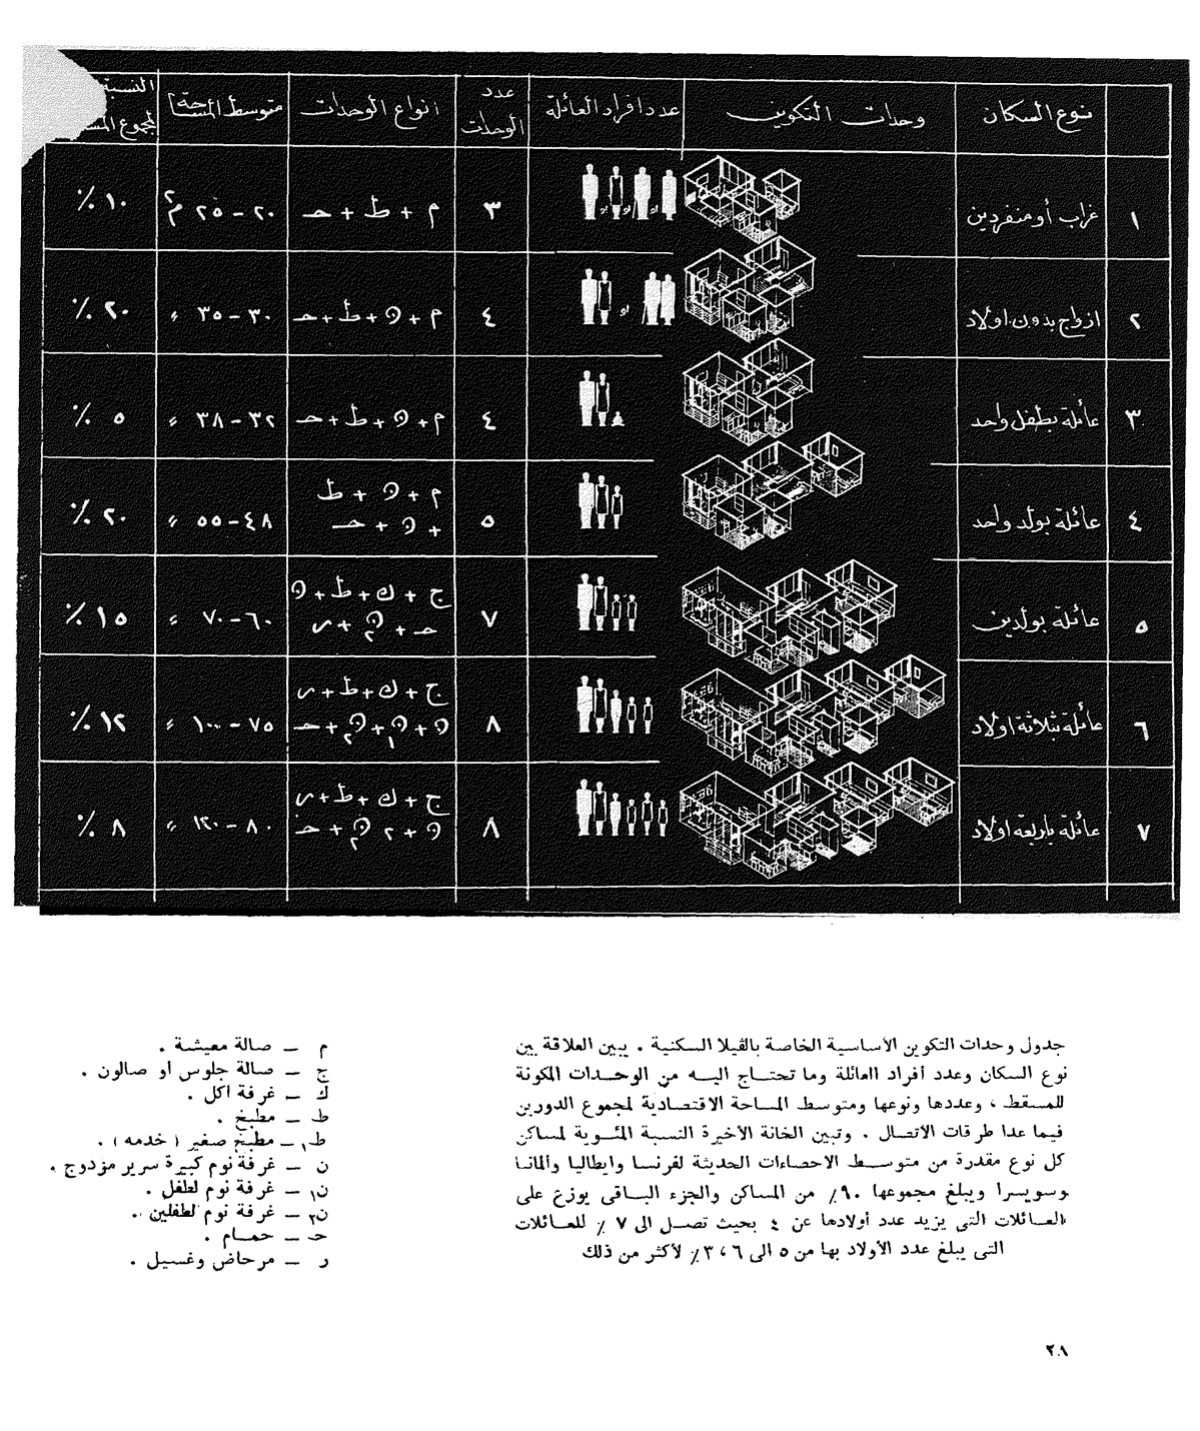 نوع السكان	وحدات التكوين	عدد افراد العائلة	عدد الوحدات	انواع الوحدات	متوسط المساحة	النسبة لمجموع
١	عزاب أو منفردين	٣	م + ط + حـ	٢٠ – ٢٥ م٢	١٠ ٪
٢	ازواج بدون اولاد	او	٤	م + ن + ط + حـ	٣٠ – ٣٥ ء	٢٠ ٪
٣	عائلة بطفل واحد	٤	م + ن + ط + حـ	٣٢ – ٣٨ ء	٥ ٪
٤	عائلة بولد واحد	٥	م + ن + ط + ن + حـ	٤٨ – ٥٥ ء	٢٠ ٪
٥	عائلة بولدين	٧	ج + ك + ط + ن حـ + ن٢ + ر	٦٠ – ٧٠ ء	١٥ ٪
٦	عائلة بثلاثة اولاد	٨	ج + ك + ط + ر ن + ن١ + ن٢ + حـ	٧٥ – ١٠٠ ء	١٢ ٪
٧	عائلة باربعه اولاد	٨	ج + ك + ط + ر ن + ٢ ن٢ + حـ	٨٠ – ١٢٠ ء	٨ ٪
جدول وحدات التكوين الأساسية الخاصة بالفيلا السكنية . يبين العلاقة بين
نوع السكان وعدد أفراد العائلة وما تحتاج اليه من الوحدات المكونة
للمسقط ، وعددها ونوعها ومتوسط المساحة الاقتصادية لمجموع الدورين
فيما عدا طرقات الاتصال . وتبين الخانة الأخيرة النسبة المئوية لمساكن
كل نوع مقدرة من متوسط الاحصاءات الحديثة لفرنسا وايطاليا وألمانيا
وسويسرا ويبلغ مجموعها ٩٠٪ من المساكن والجزء الباقى يوزع على
العائلات التى يزيد عدد أولادها عن ٤ بحيث تصل الى ٧ ٪ للعائلات
التى يبلغ عدد الأولاد بها من ٥ الى ٦ ، ٣٪ لأكثر من ذلك
م – صالة معيشة .
ج – صالة جلوس او صالون .
ك – غرفة اكل .
ط – مطبخ .
ط١ – مطبخ صغير ( خدمه ) .
ن – غرفة نوم كبيرة سرير مزدوج .
ن١ – غرفة نوم لطفل .
ن٢ – غرفة نوم لطفلين .
حـ – حمام .
ر – مرحاض وغسيل .
٢٠١